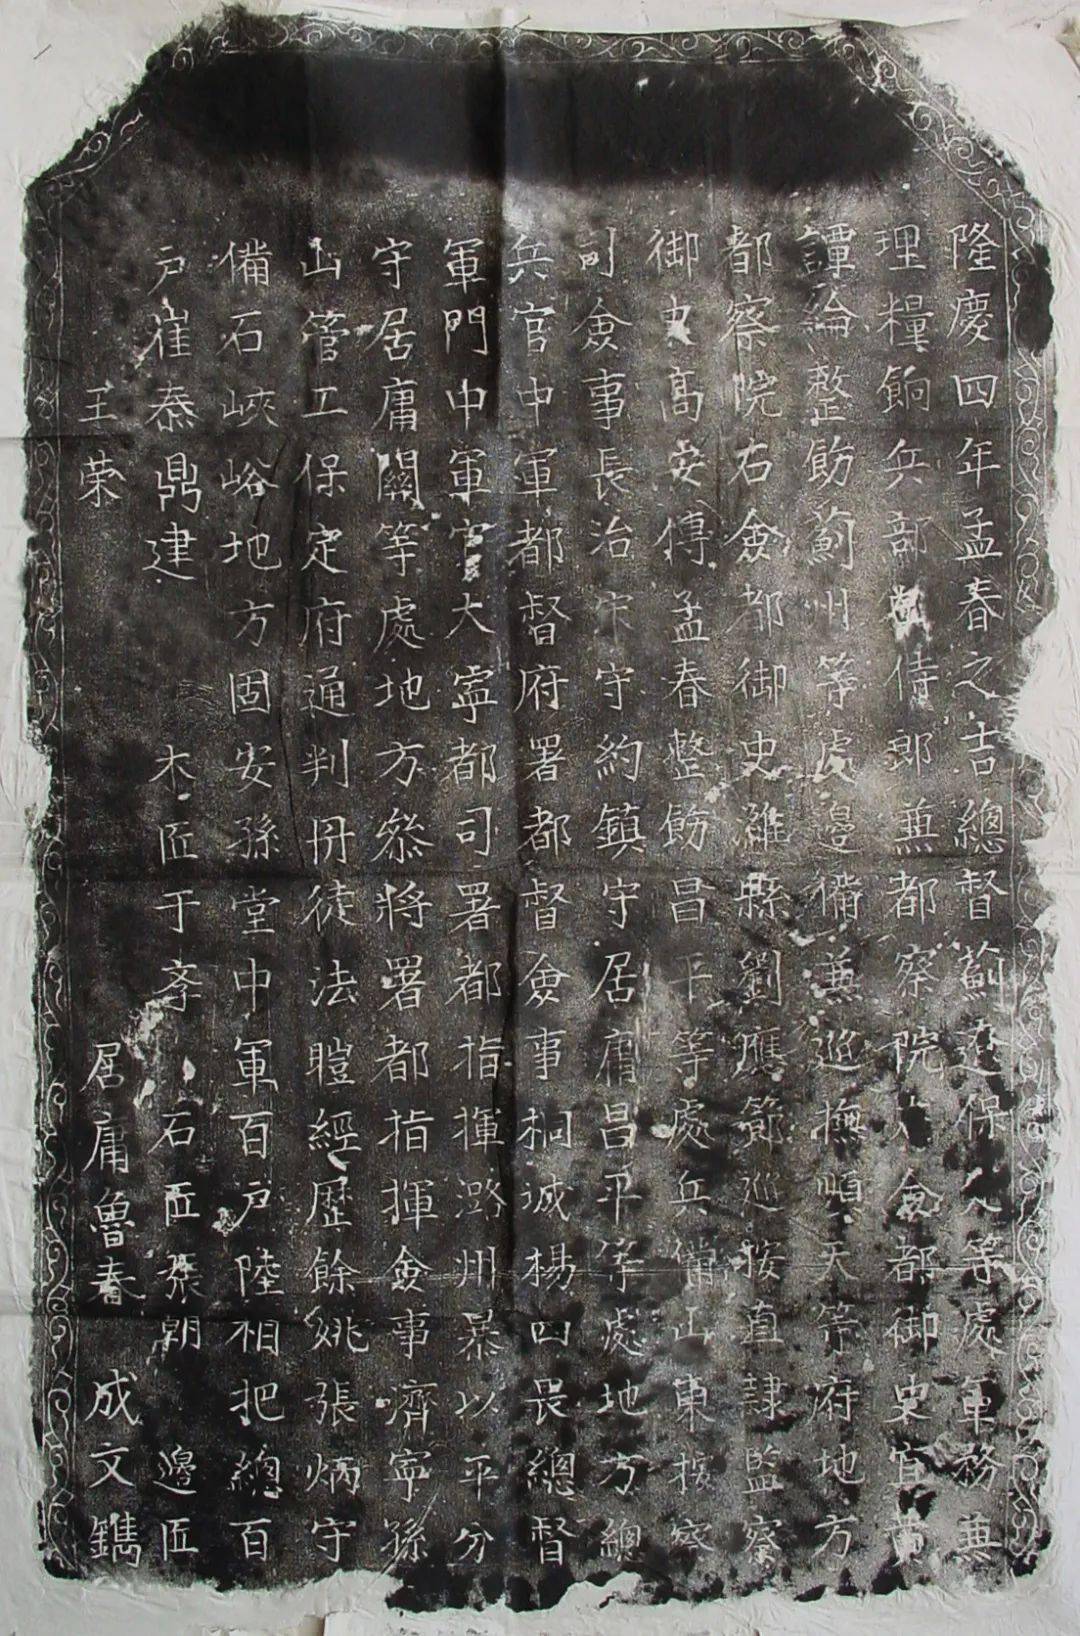 隆慶四年孟春之吉總督薊遼保定等處軍務兼
理糧餉兵部侍郎兼都察院右僉都御史宜黃
譚綸整飭薊州等處邊備兼巡撫順天等府地方
都察院右僉都御史濰縣劉應節巡按直隸監察
御史高安傅孟春整飭昌平等處兵備山東按察
司僉事長治宋守約鎮守居庸昌平等處地方總
兵官中軍都督府署都督僉事桐城楊四畏總督
軍門中軍官大寧都司署都指揮潞州暴以平分
守居庸關等處地方叅將署都指揮僉事濟寧孫
山管工保定府通判丹徒法暟經歷餘姚張炳守
備石峽峪地方固安孫堂中軍百戶陸相把總百
戶崔泰鼎建 木匠于孝 石匠張朝 邊匠
王荣 居庸魯春 成文鐫